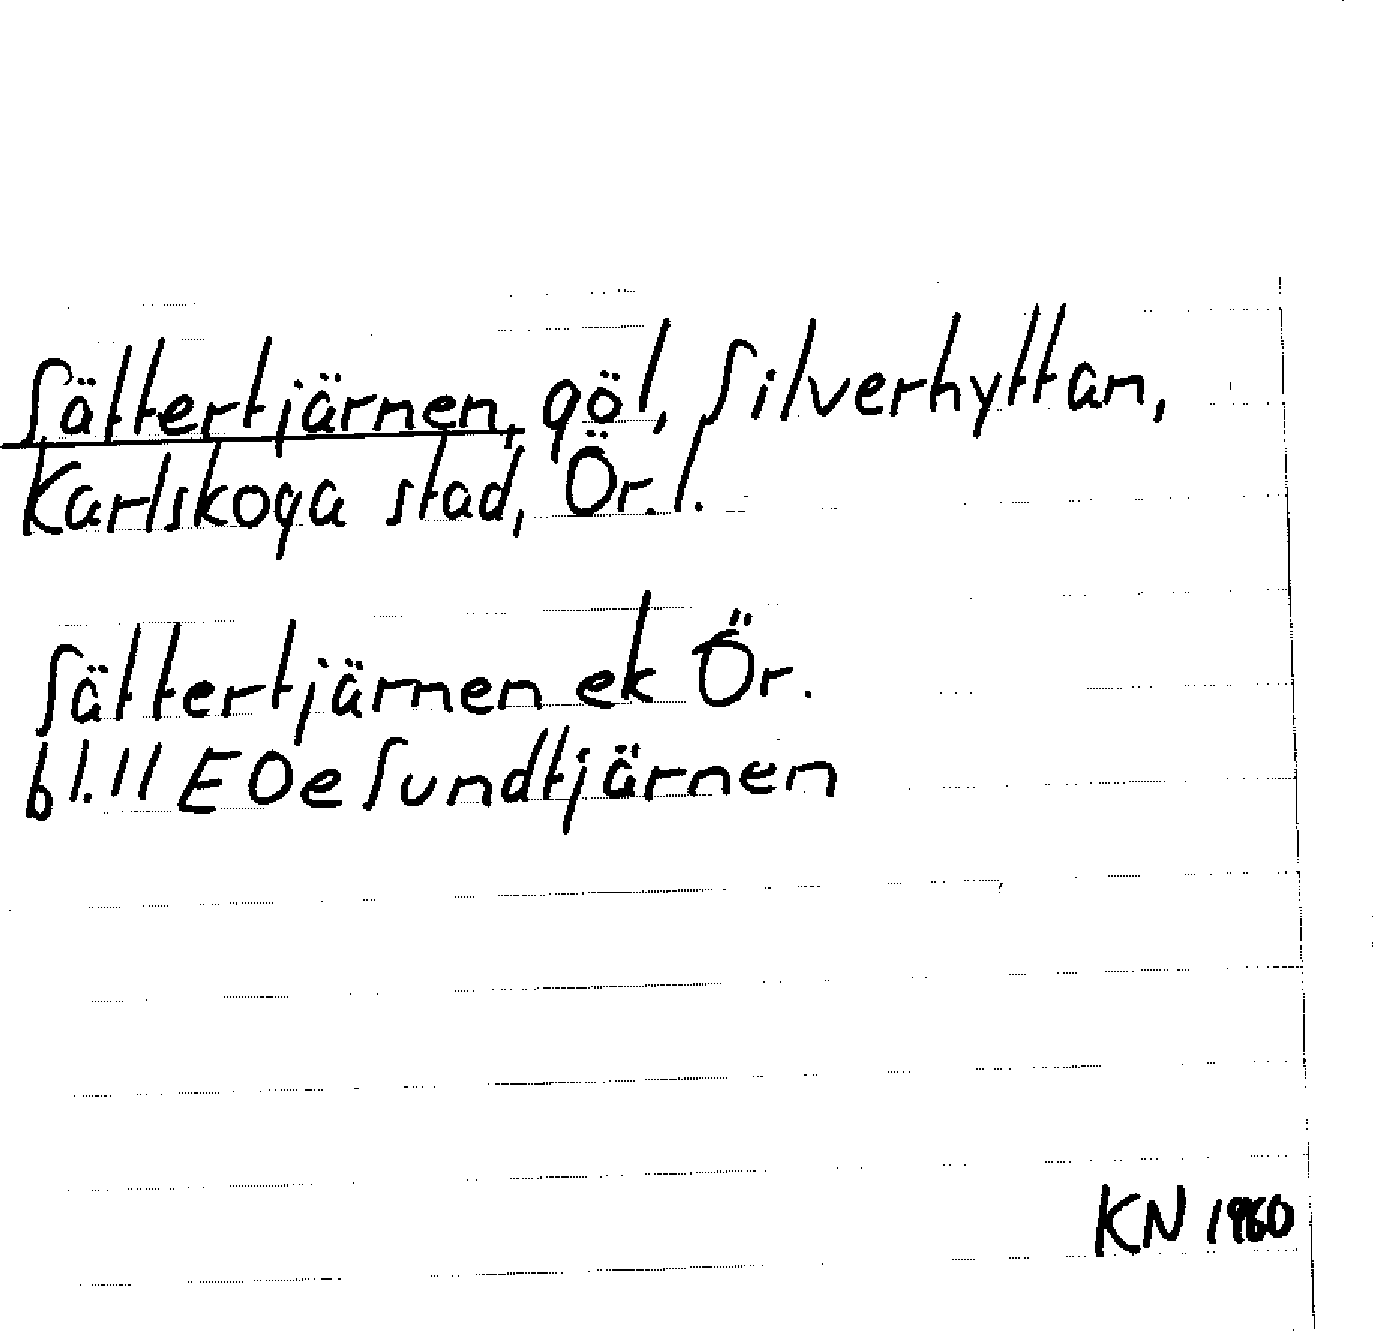 Sättertjärnen, göl, Silverhyttan,
Karlskoga stad, Ör. l.
Sättertjärnen ek Ör.
bl. 11 E O e Sundtjärnen
KN 1960